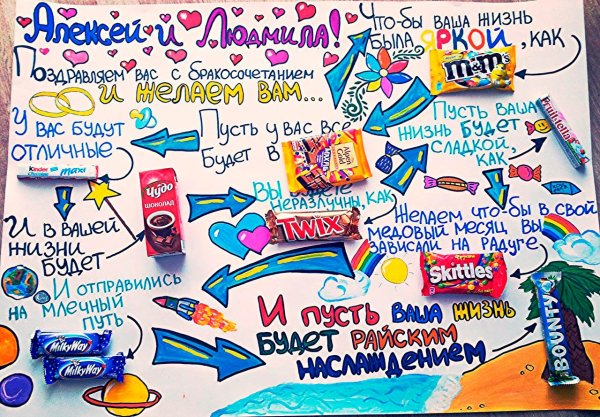 Алексей и Людмила!
Поздравляем вас с бракосочетанием
и желаем вам...
Что-бы ваша жизнь
была яркой, как
m&m's
Пусть ваша
жизнь будет
сладкой,
как
Fruittella
Пусть у вас все
будет в
Alpen Gold
У вас будут
отличные
kinder
maxi
И в вашей
жизни
будет
Чудо
шоколад
Вы
неразлучны, как
TWIX
Желаем что-бы в свой
медовый месяц вы
зависали на радуге
Skittles
И отправились
на млечный
путь
MilkyWay
MilkyWay
И пусть ваша жизнь
будет райским
наслаждением
BOUNTY